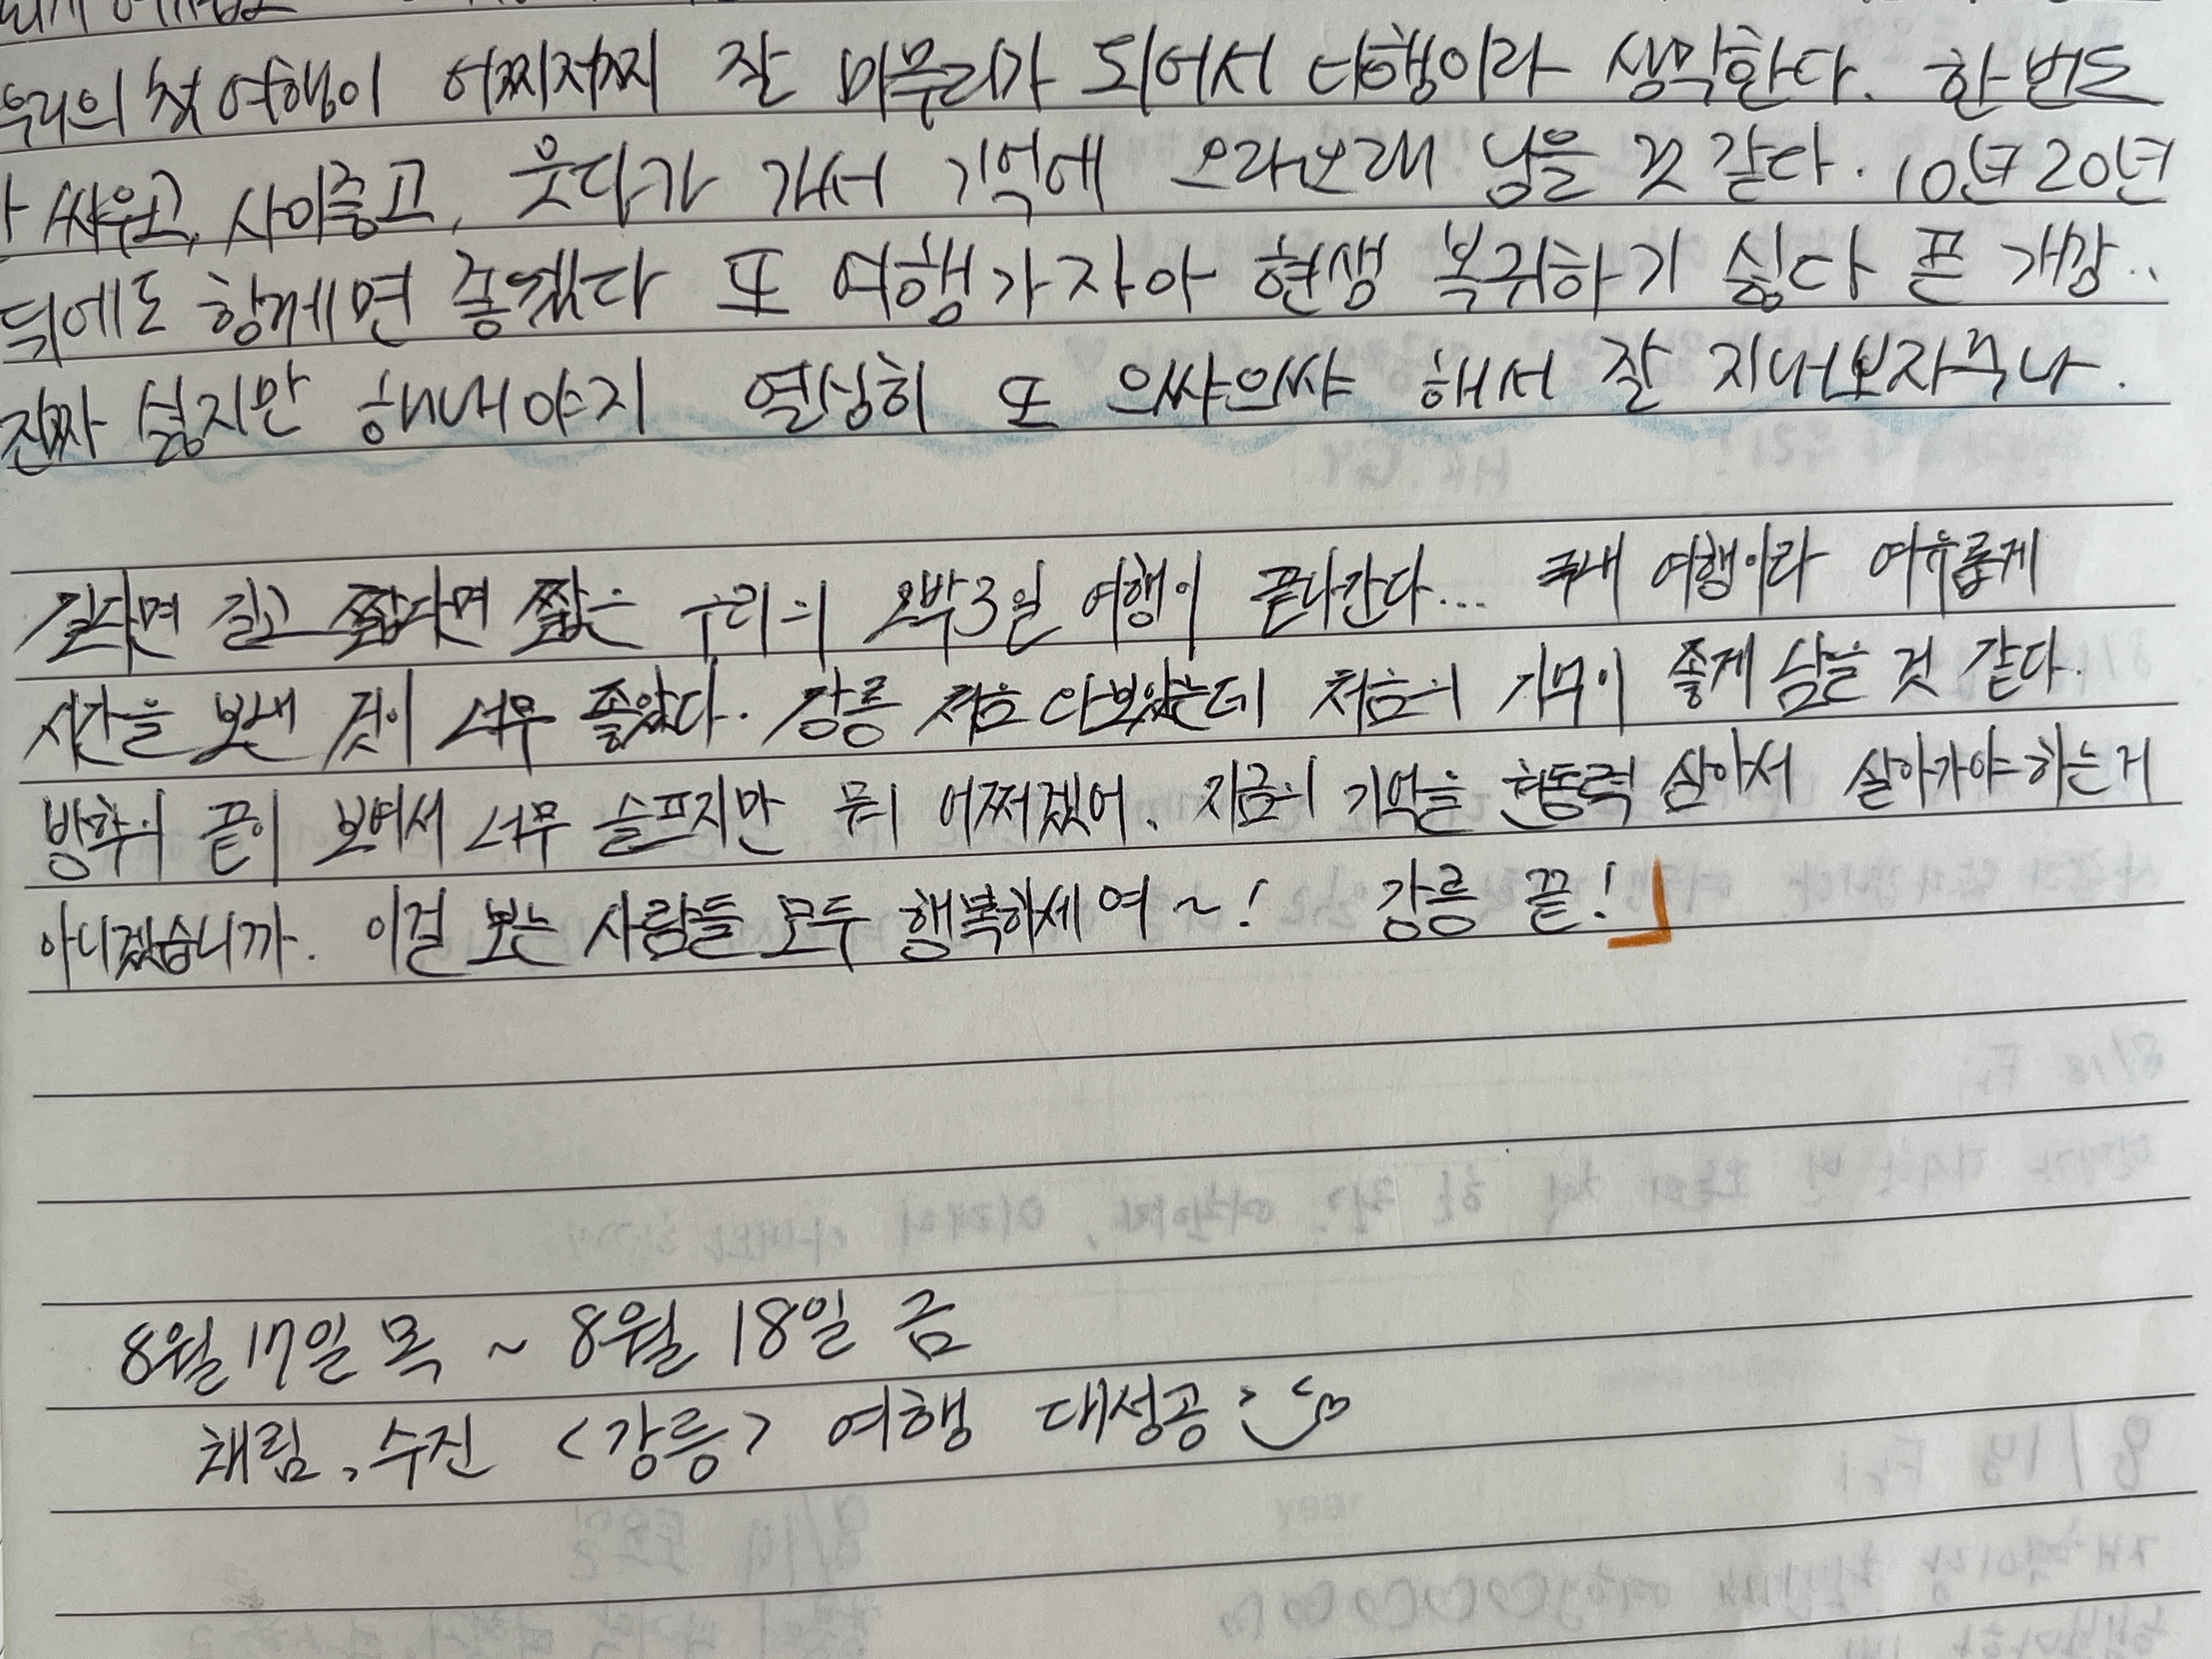 우리의 첫 여행이 어찌저찌 잘 마무리가 되어서 다행이라 생각한다. 한번도
싸우고, 사이좋고, 웃다가 가서 기억에 오라오래 남을 것 같다. 10년 20년
뒤에도 함께면 좋겠다 또 여행가자아 현생 복귀하기 싫다 푼 개강..
진짜 싫지만 해내야지 열심히 또 으쌰으쌰 해서 잘 지내보자구나.
길다면 길고 짧다면 짧은 우리의 2박3일 여행이 끝나간다... 국내 여행이라 여유롭게
시간을 보낸 것이 너무 좋았다. 강릉 처음 와보았는데 처음의 기억이 좋게 남을 것 같다.
방학의 끝이 보여서 너무 슬프지만 뭐 어쩌겠어. 지금의 기억을 원동력 삼아서 살아가야하는거
아니겠습니까. 이걸 보는 사람들 모두 행복하세여~! 강릉 끝!
8월 17일 목 ~ 8월 18일 금
채림, 수진 <강릉> 여행 대성공